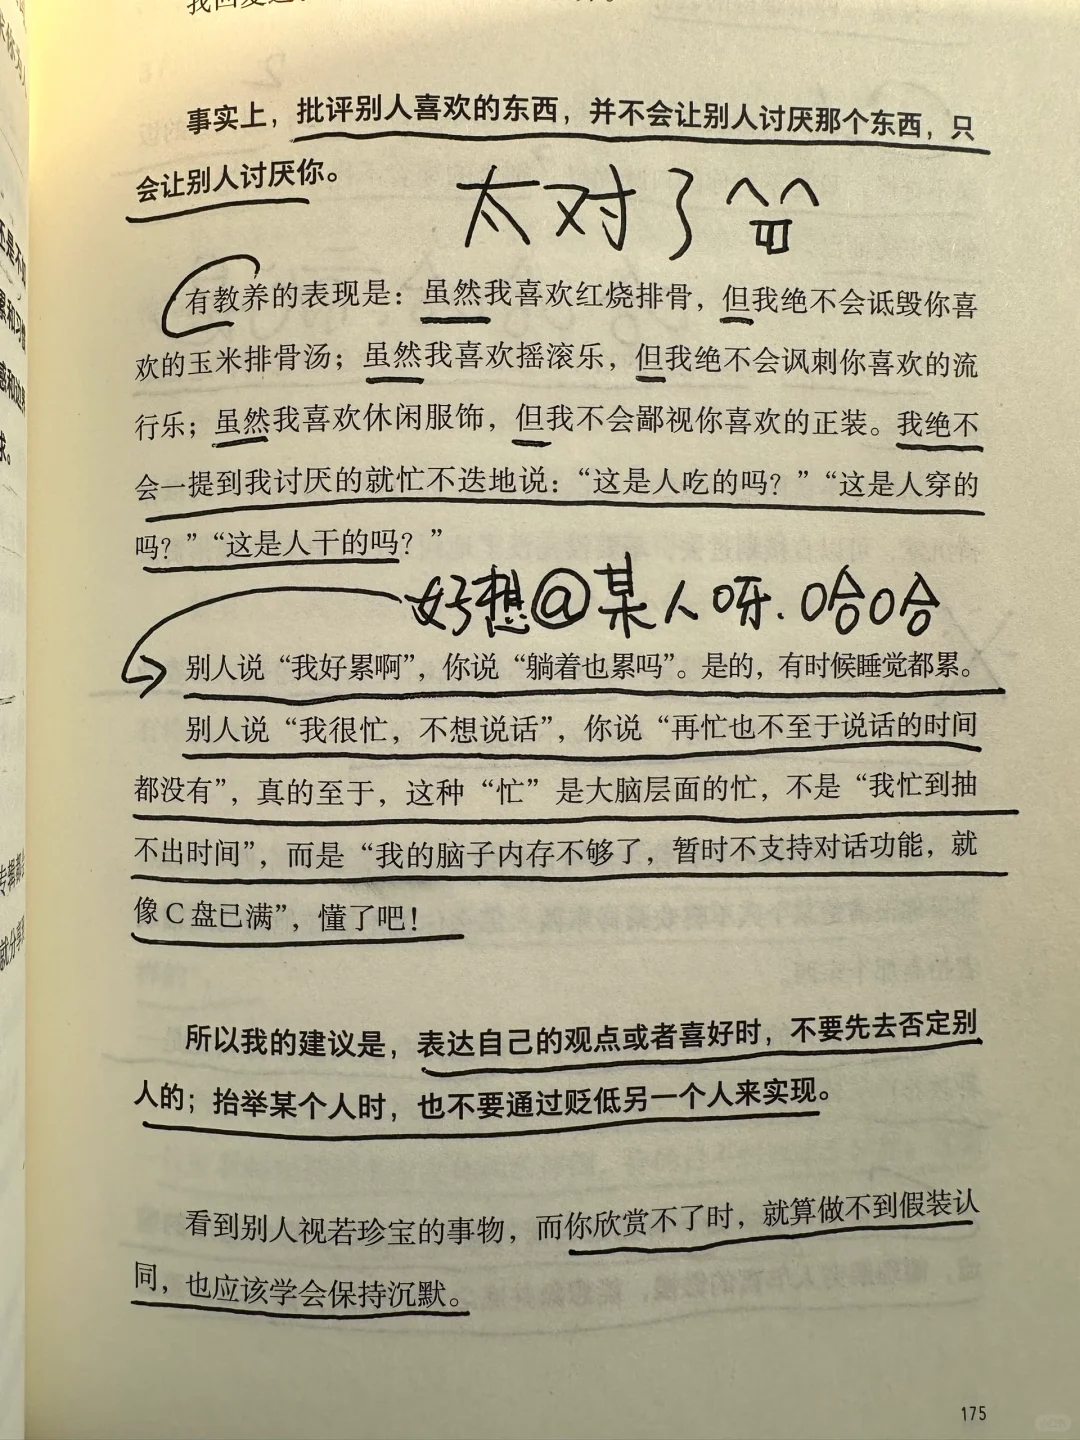 事实上，批评别人喜欢的东西，并不会让别人讨厌那个东西，只
会让别人讨厌你。
太对了
有教养的表现是：虽然我喜欢红烧排骨，但我绝不会诋毁你喜
欢的玉米排骨汤；虽然我喜欢摇滚乐，但我绝不会讽刺你喜欢的流
行乐；虽然我喜欢休闲服饰，但我不会鄙视你喜欢的正装。我绝不
会一提到我讨厌的就忙不迭地说：“这是人吃的吗？”“这是人穿的
吗？”“这是人干的吗？”
好想@某人呀.哈哈
别人说“我好累啊”，你说“躺着也累吗”。是的，有时候睡觉都累。
别人说“我很忙，不想说话”，你说“再忙也不至于说话的时间
都没有”，真的至于，这种“忙”是大脑层面的忙，不是“我忙到抽
不出时间”，而是“我的脑子内存不够了，暂时不支持对话功能，就
像C盘已满”，懂了吧！
所以我的建议是，表达自己的观点或者喜好时，不要先去否定别
人的；抬举某个人时，也不要通过贬低另一个人来实现。
看到别人视若珍宝的事物，而你欣赏不了时，就算做不到假装认
同，也应该学会保持沉默。
175